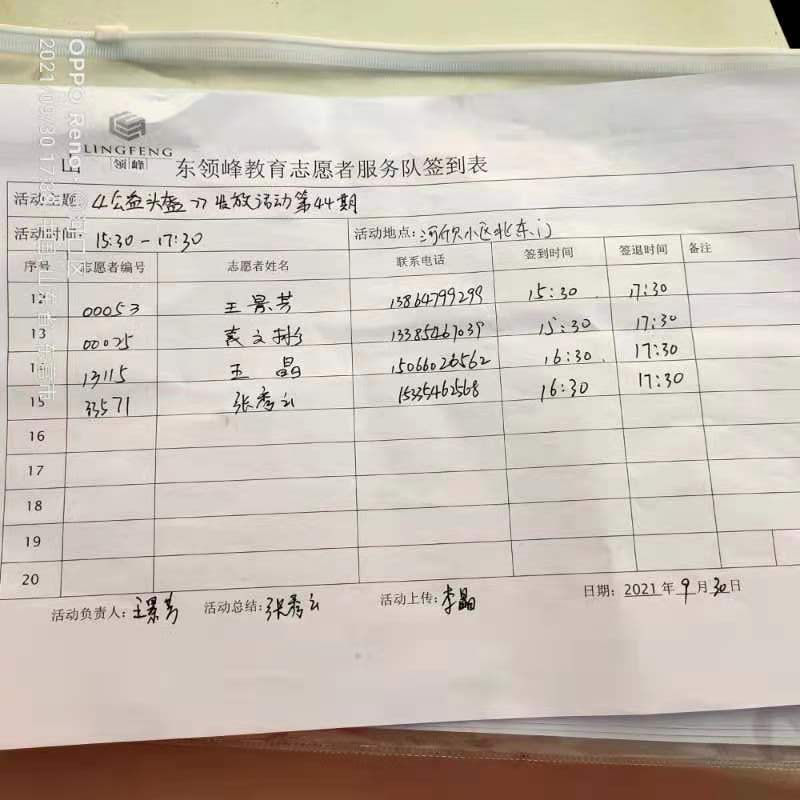 LINGFENG
领峰
东领峰教育志愿者服务队签到表
活动主题: 《公益头盔》发放活动第44期
活动时间: 15:30-17:30 活动地点: 小区北东门
序号 志愿者编号 志愿者姓名 联系电话 签到时间 签退时间 备注
12 00053 王景芳 13864799299 15:30 17:30
13 00025 袁文彬 13385467039 15:30 17:30
14 13115 王晶 15066026562 16:30 17:30
15 33571 张秀云 15335462568 16:30 17:30
16
17
18
19
20
活动负责人: 王景芳 活动总结: 张秀云 活动上传: 李晶 日期: 2021年9月30日
OPPO Reno
2021/09/30 17:39